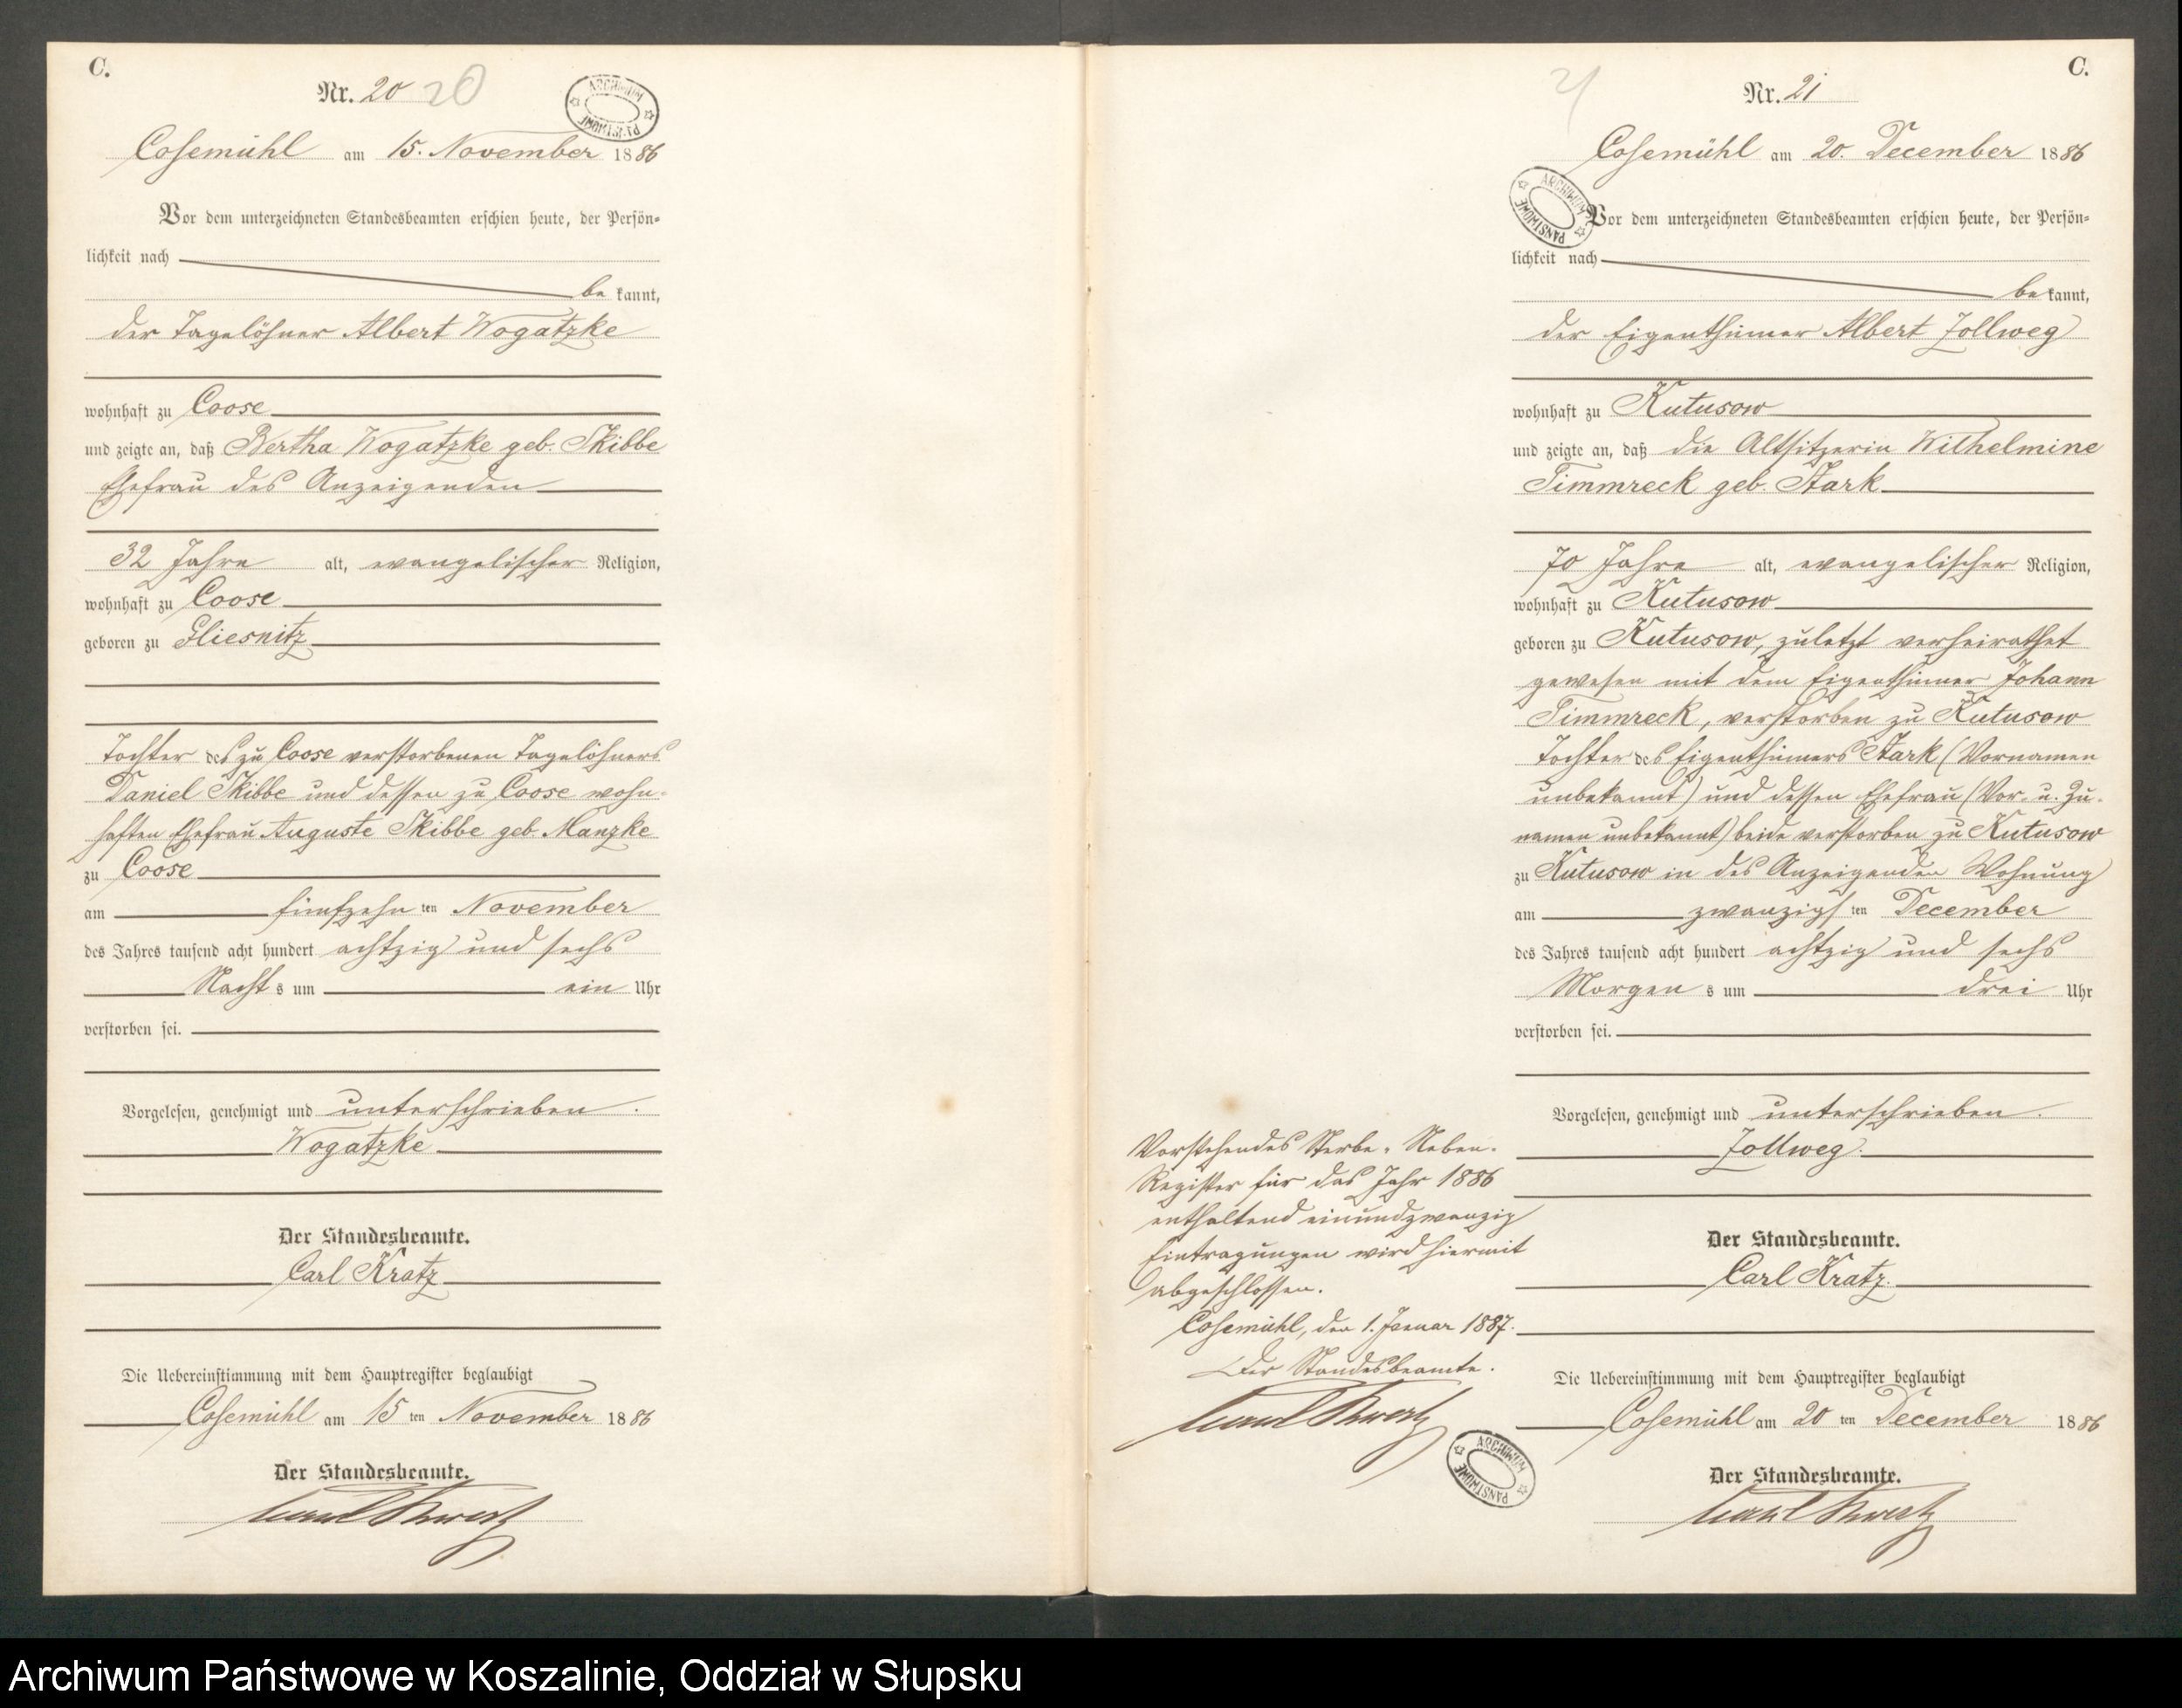 C.
Nr. 20 20
ARCHIWUM PAŃSTWOWE
Cosemühl am 15. November 1886
Vor dem unterzeichneten Standesbeamten erschien heute, der Persön-
lichkeit nach
be kannt,
der Tagelöhner Albert Wogatzke
wohnhaft zu Coose
und zeigte an, daß Bertha Wogatzke geb. Skibbe
Ehefrau des Anzeigenden
32 Jahre alt, evangelischer Religion,
wohnhaft zu Coose
geboren zu Gliesnitz
Tochter des zu Coose verstorbenen Tagelöhners
Daniel Skibbe und dessen zu Coose wohn-
haften Ehefrau Auguste Skibbe geb. Manzke
zu Coose
am fünfzehn ten November
des Jahres tausend acht hundert achtzig und sechs
Nacht s um ein Uhr
verstorben sei.
Vorgelesen, genehmigt und unterschrieben.
Wogatzke
Der Standesbeamte.
Carl Kratz
Die Uebereinstimmung mit dem Hauptregister beglaubigt
Cosemühl am 15 ten November 1886
Der Standesbeamte.
C.
21
Nr. 21
Cosemühl am 20. December 1886
ARCHIWUM PAŃSTWOWE
Vor dem unterzeichneten Standesbeamten erschien heute, der Persön-
lichkeit nach
be kannt,
der Eigenthümer Albert Zollweg
wohnhaft zu Kutusow
und zeigte an, daß die Altsitzerin Wilhelmine
Timmreck geb. Stark
70 Jahre alt, evangelischer Religion,
wohnhaft zu Kutusow
geboren zu Kutusow, zuletzt verheirathet
gewesen mit dem Eigenthümer Johann
Timmreck, verstorben zu Kutusow
Tochter des Eigenthümers Stark (Vornamen
unbekannt) und dessen Ehefrau (Vor- u. Zu-
namen unbekannt) beide verstorben zu Kutusow
zu Kutusow in des Anzeigenden Wohnung
am zwanzigs ten December
des Jahres tausend acht hundert achtzig und sechs
Morgen s um drei Uhr
verstorben sei.
Vorgelesen, genehmigt und unterschrieben.
Zollweg.
Der Standesbeamte.
Carl Kratz.
Die Uebereinstimmung mit dem Hauptregister beglaubigt
Cosemühl am 20 ten December 1886
Der Standesbeamte.
Vorstehendes Sterbe-Neben-
Register für das Jahr 1886
enthaltend einundzwanzig
Eintragungen wird hiermit
abgeschlossen.
Cosemühl, den 1. Januar 1887.
Der Standesbeamte.
ARCHIWUM PAŃSTWOWE
Archiwum Państwowe w Koszalinie, Oddział w Słupsku